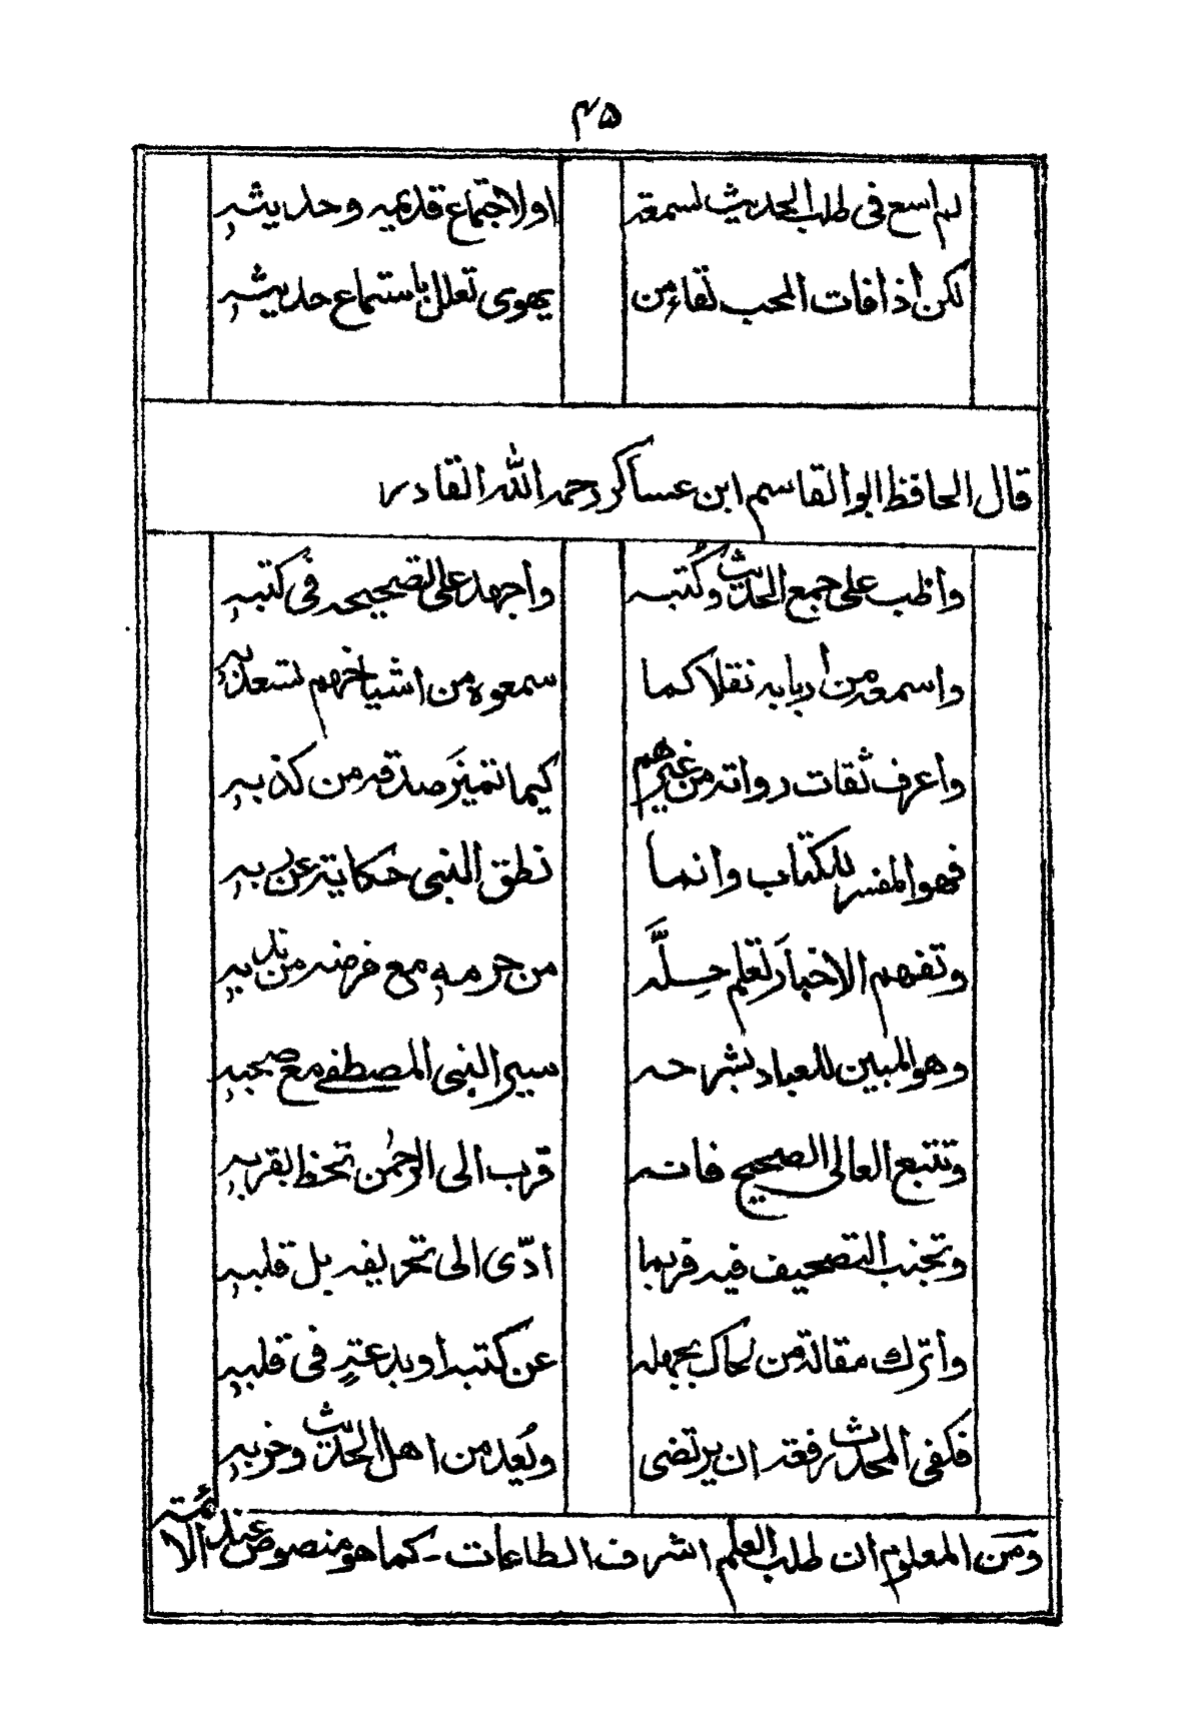 ۴۵
لم اسع فی طلب الحدیث لسمعة اولاجتماع قدیمہ وحدیثہٖ
لکن اذا فات المحب لقاء من یھوی تعلل باستماع حدیثہٖ
قال الحافظ ابوالقاسم ابن عساکر رحمہ اللہ القادر
واظب علی جمع الحدیث وکُتبہ واجھد علی تصحیحہ فی کتبہٖ
واسمعہ من اربابہ نقلا کما سمعوہ من اشیاخھم تسعد بہٖ
واعرف ثقات رواتہ من غیرھم کیما تمیزَ صدقہ من کذبہٖ
فھو المفسر للکتاب وانما نطق النبی حکایة عن ربہٖ
وتفھم الاخبارَ تعلم حِلَّہ من حرمہٖ مع فرضہ من ندبہٖ
وھو المبین للعباد بشرحہ سیر النبی المصطفی مع صحبہٖ
وتتبع العالی الصحیح فانہ قرب الی الرحمٰن تحظ بقربہٖ
وتجنب التصحیف فیہ فربما ادّی الی تحریفہ بل قلبہٖ
واترك مقالة من لحاك بجھلہ عن کتبہ اوبدعتہٍ فی قلبہٖ
فکفی المحدث رفعة ان یرتضی ویُعد من اھل الحدیث وحزبہٖ
وَمَن المعلوم ان طلب العلم اشرف الطاعات ۔ کما ھو منصوص عند الائمة